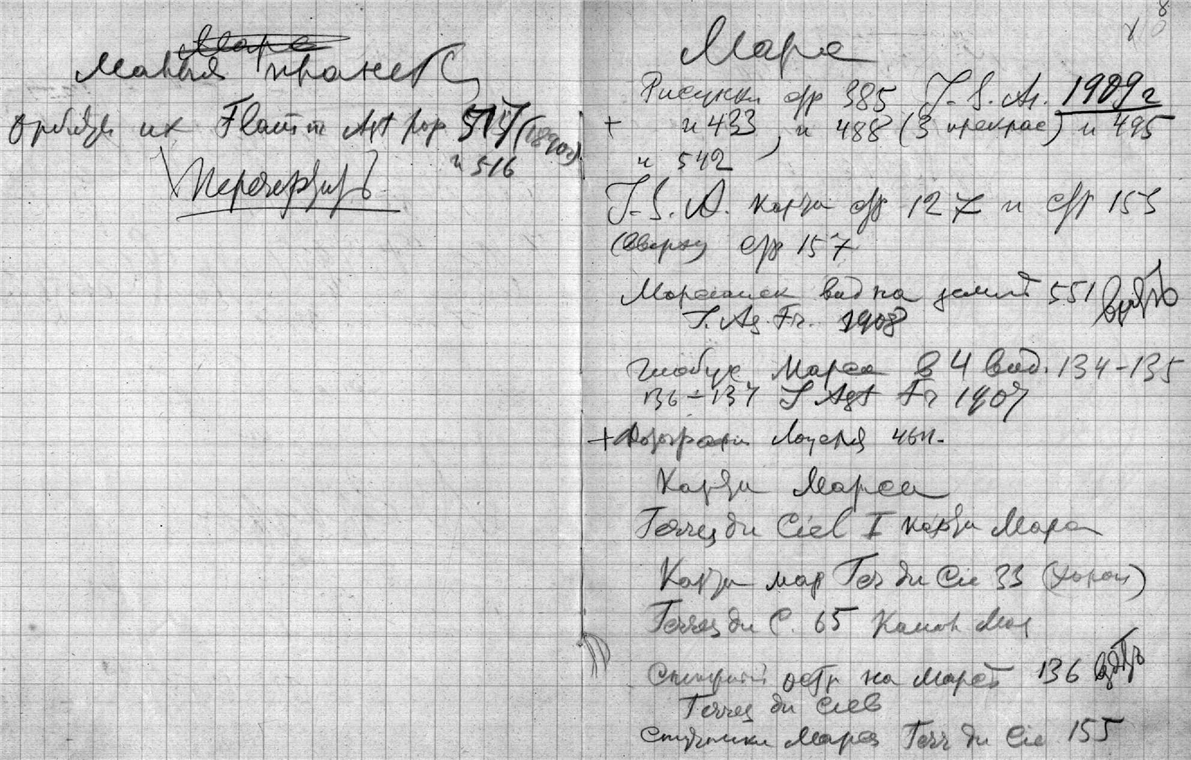 Марс
Малыя планеты
орбиты их Flamm Ast pop 517 (1890г)
и 516
Перечертить
8
Марс
Рисунки стр 385 J. S. As. 1909 г
+ и 433, и 488 (3 прекрас) и 495
и 542
J. S. A. карты стр 127 и стр 153
(сверху стр 157
Марсианск вид на земли 551 взять
S. As Fr. 1908
Глобус Марса в 4 вид. 134-135
136-137 S Ast Fr 1907
+ Фотографии Ловеля 461.
Карты Марса
Terres du Ciel I карта Марса
Карта мар Ter du Cie 33 (хорош)
Terres du C. 65 Канал Мар
остр на Марсе 136 взять
Terres du Ciel
Спутники Марса Terr du Cie 155